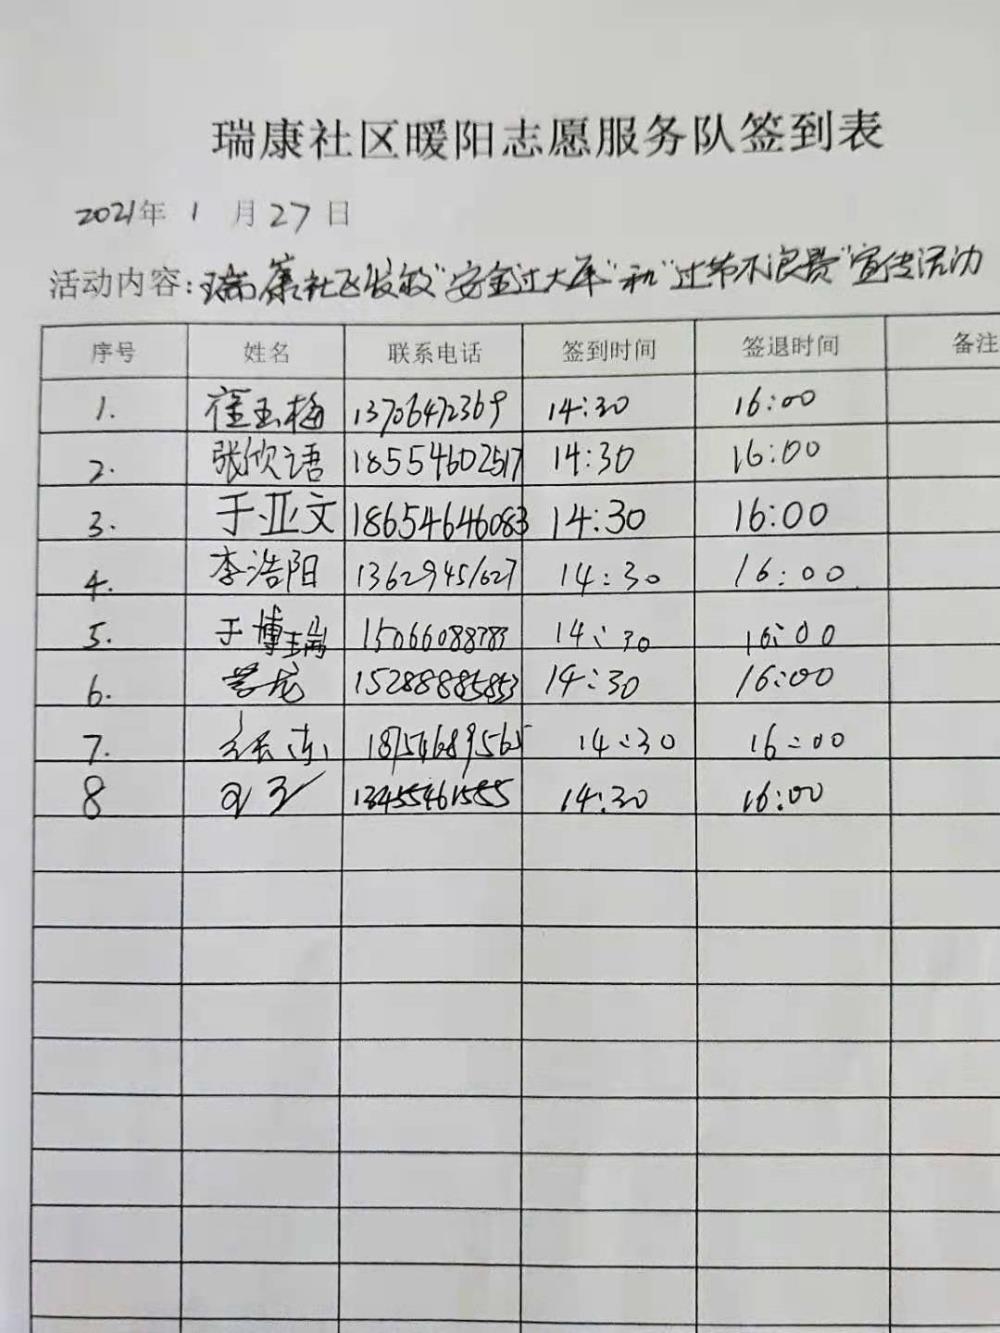 瑞康社区暖阳志愿服务队签到表
2021年 1 月27日
活动内容:瑞康社区发放“安全过大年”和“过节不浪费”宣传活动
序号 姓名 联系电话 签到时间 签退时间 备注
1. 崔玉梅 13706472369 14:30 16:00
2. 张欣语 18554602517 14:30 16:00
3. 于亚文 18654646083 14:30 16:00
4. 李浩阳 13629451627 14:30 16:00
5. 于博瑞 15066088783 14:30 16:00
6. 15288885853 14:30 16:00
7. 18754689565 14:30 16:00
8 13455461555 14:30 16:00